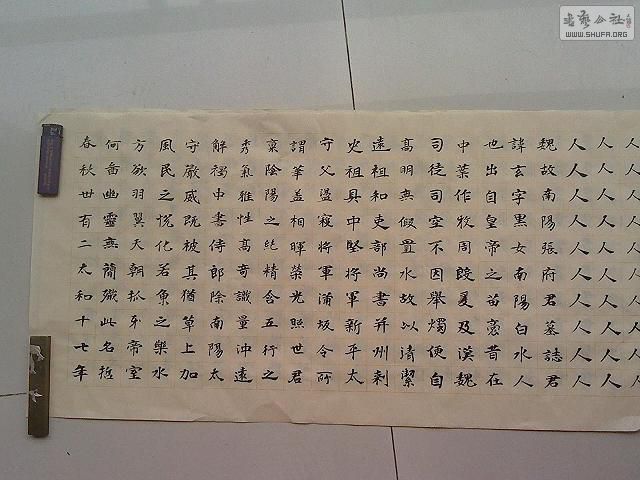 人人人人人人人人人人
人人人人人人人人人人
人人人人人人人人人人
魏故南陽張府君墓誌君
諱玄字黑女南陽白水人
也出自皇帝之苗裔昔在
中葉作牧周殷夏及漢魏
司徒司空不因舉燭便自
高明無假置水故以清潔
遠祖和吏部尚書并州刺
史祖具中堅將軍新平太
守父盪寇將軍蒲坂令所
謂華蓋相暉榮光照世君
稟陰陽之純精含五行之
秀氣雅性高奇識量沖遠
解褐中書侍郎除南陽太
守嚴威既被其猶草上加
風民之悅化若魚之樂水
方欲羽翼天朝抓牙帝室
何啚幽靈無簡殲此名哲
春秋卅有二太和十七年
书艺公社
WWW.SHUFA.ORG